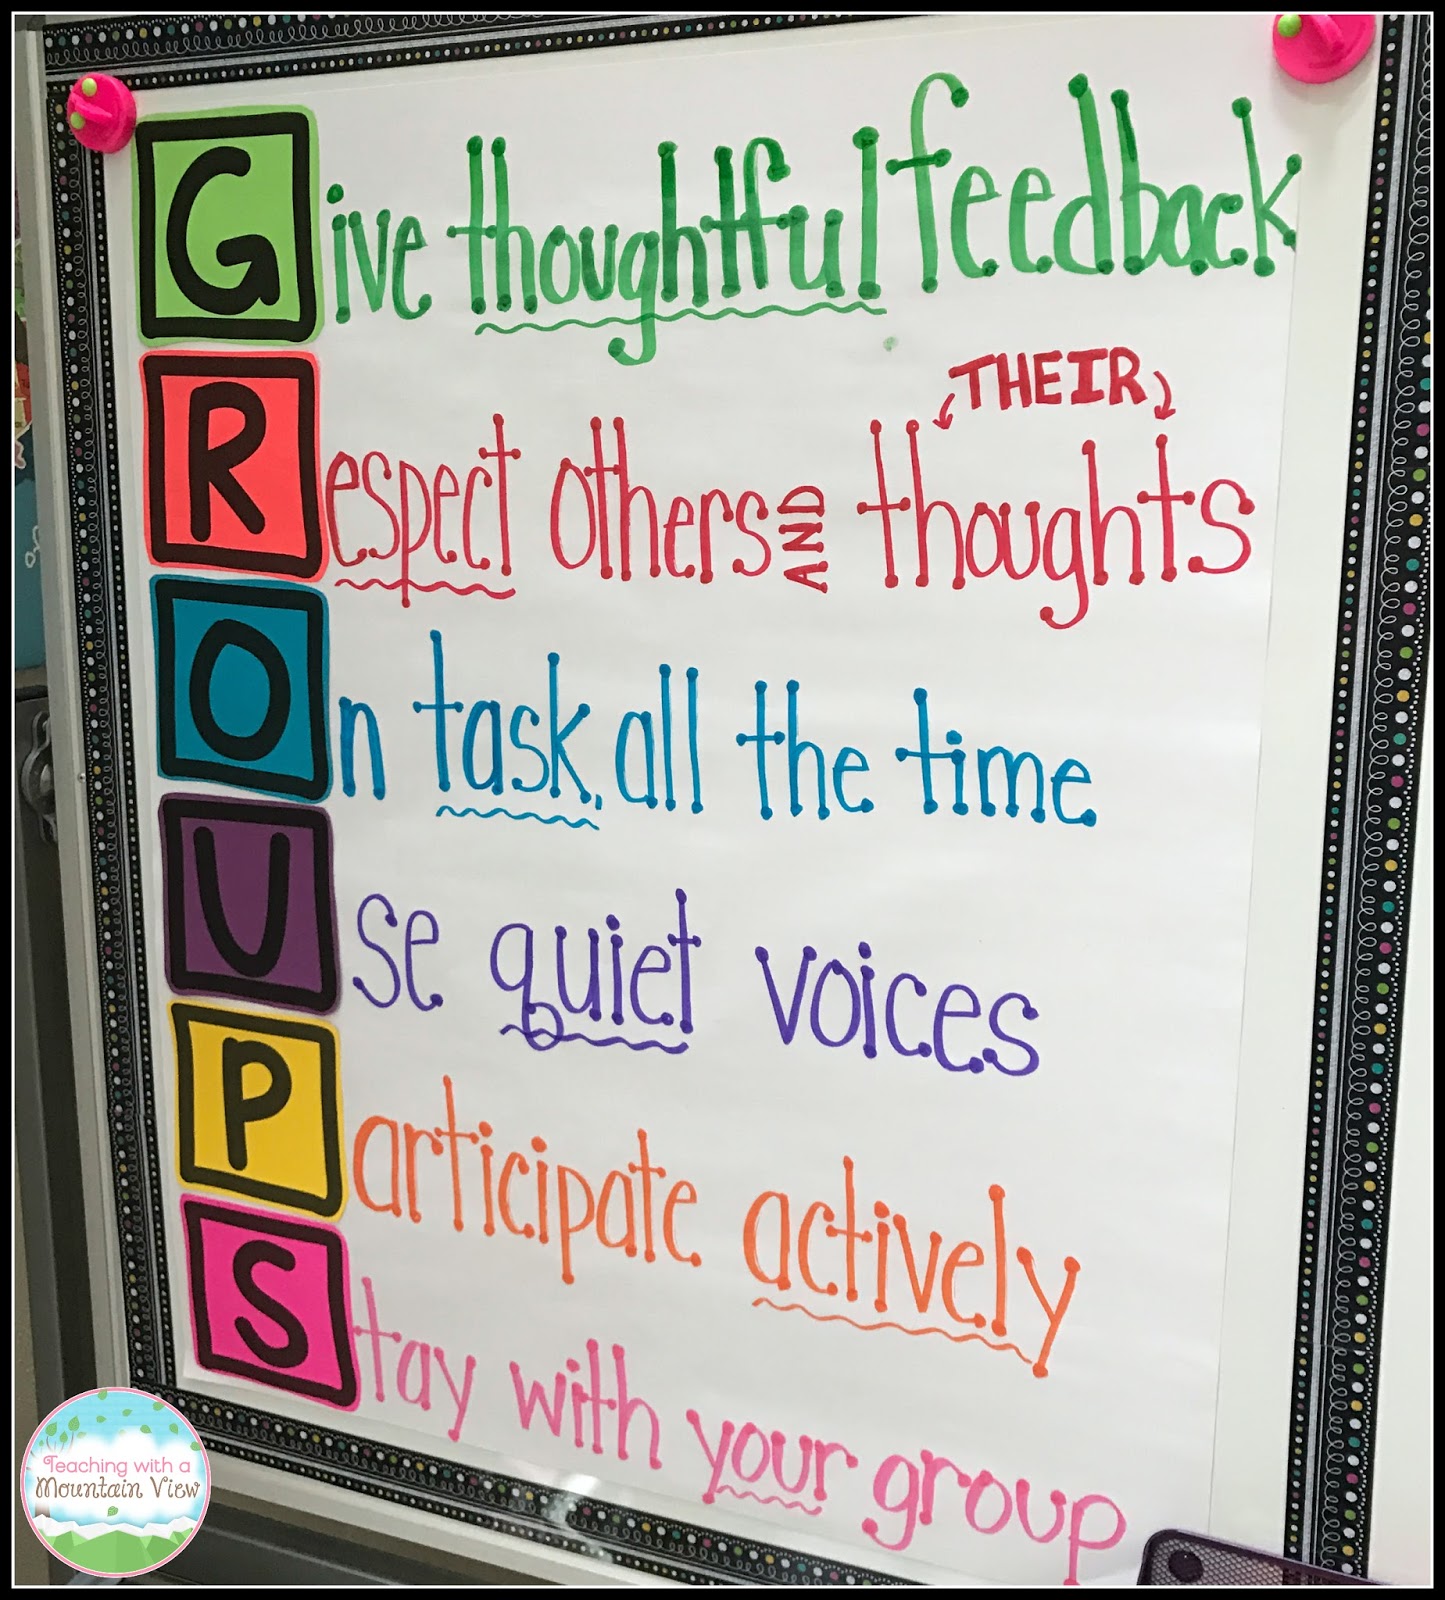 Give thoughtful feedback
THEIR
Respect others AND thoughts
On task, all the time
Use quiet voices
Participate actively
Stay with your group
Teaching with a
Mountain View